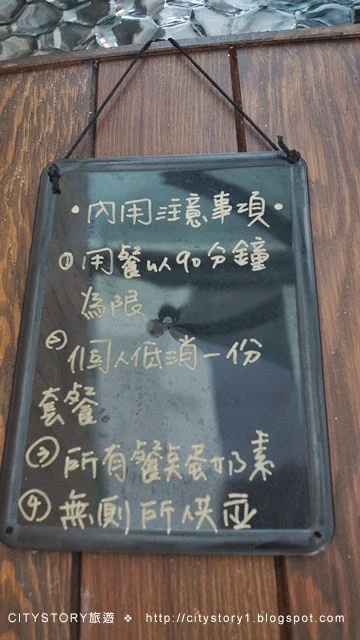 •內用注意事項•
①用餐以90分鐘
為限
②個人低消一份
套餐
③所有餐點蛋奶素
④無廁所供應
CITYSTORY旅遊 ❖ http://citystory1.blogspot.com